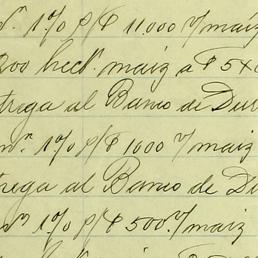 n. 1% p/$ 11000 s/maiz
200 hect. maiz a $ 5
trega al Banco de Du
m. 1% p/$ 1000 s/ maiz
trega al Banco de Du
m. 1% p/$ 500. s/ maiz